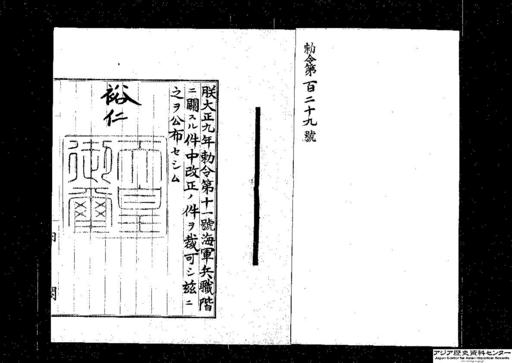 勅令第百二十九號
朕大正九年勅令第十一號海軍兵職階
ニ關スル件中改正ノ件ヲ裁可シ茲ニ
之ヲ公布セシム
裕仁
天皇
御璽
内 閣
アジア歴史資料センター
Japan Center for Asian Historical Records